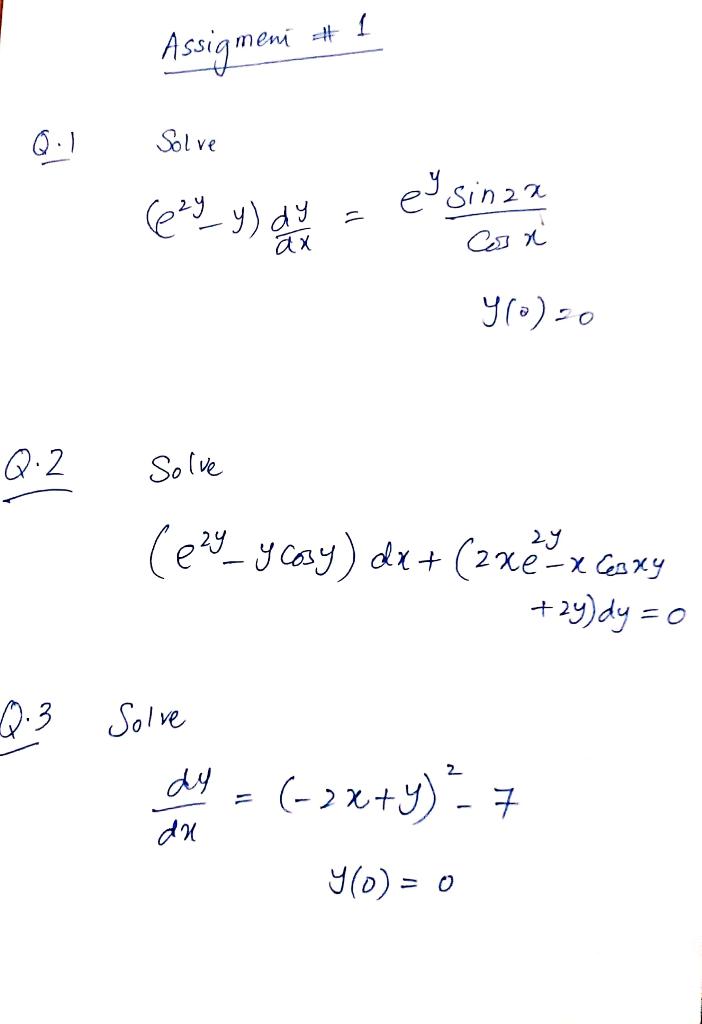 Assigmeni # 1
Q.1 Solve
(e^{2y} - y) dy/dx = e^y sin2x / Cos x
y(0) = 0
Q.2 Solve
(e^{2y} - y cosy) dx + (2xe^{2y} - x Cos xy
+ 2y)dy = 0
Q.3 Solve
dy/dx = (-2x+y)^2 - 7
y(0) = 0